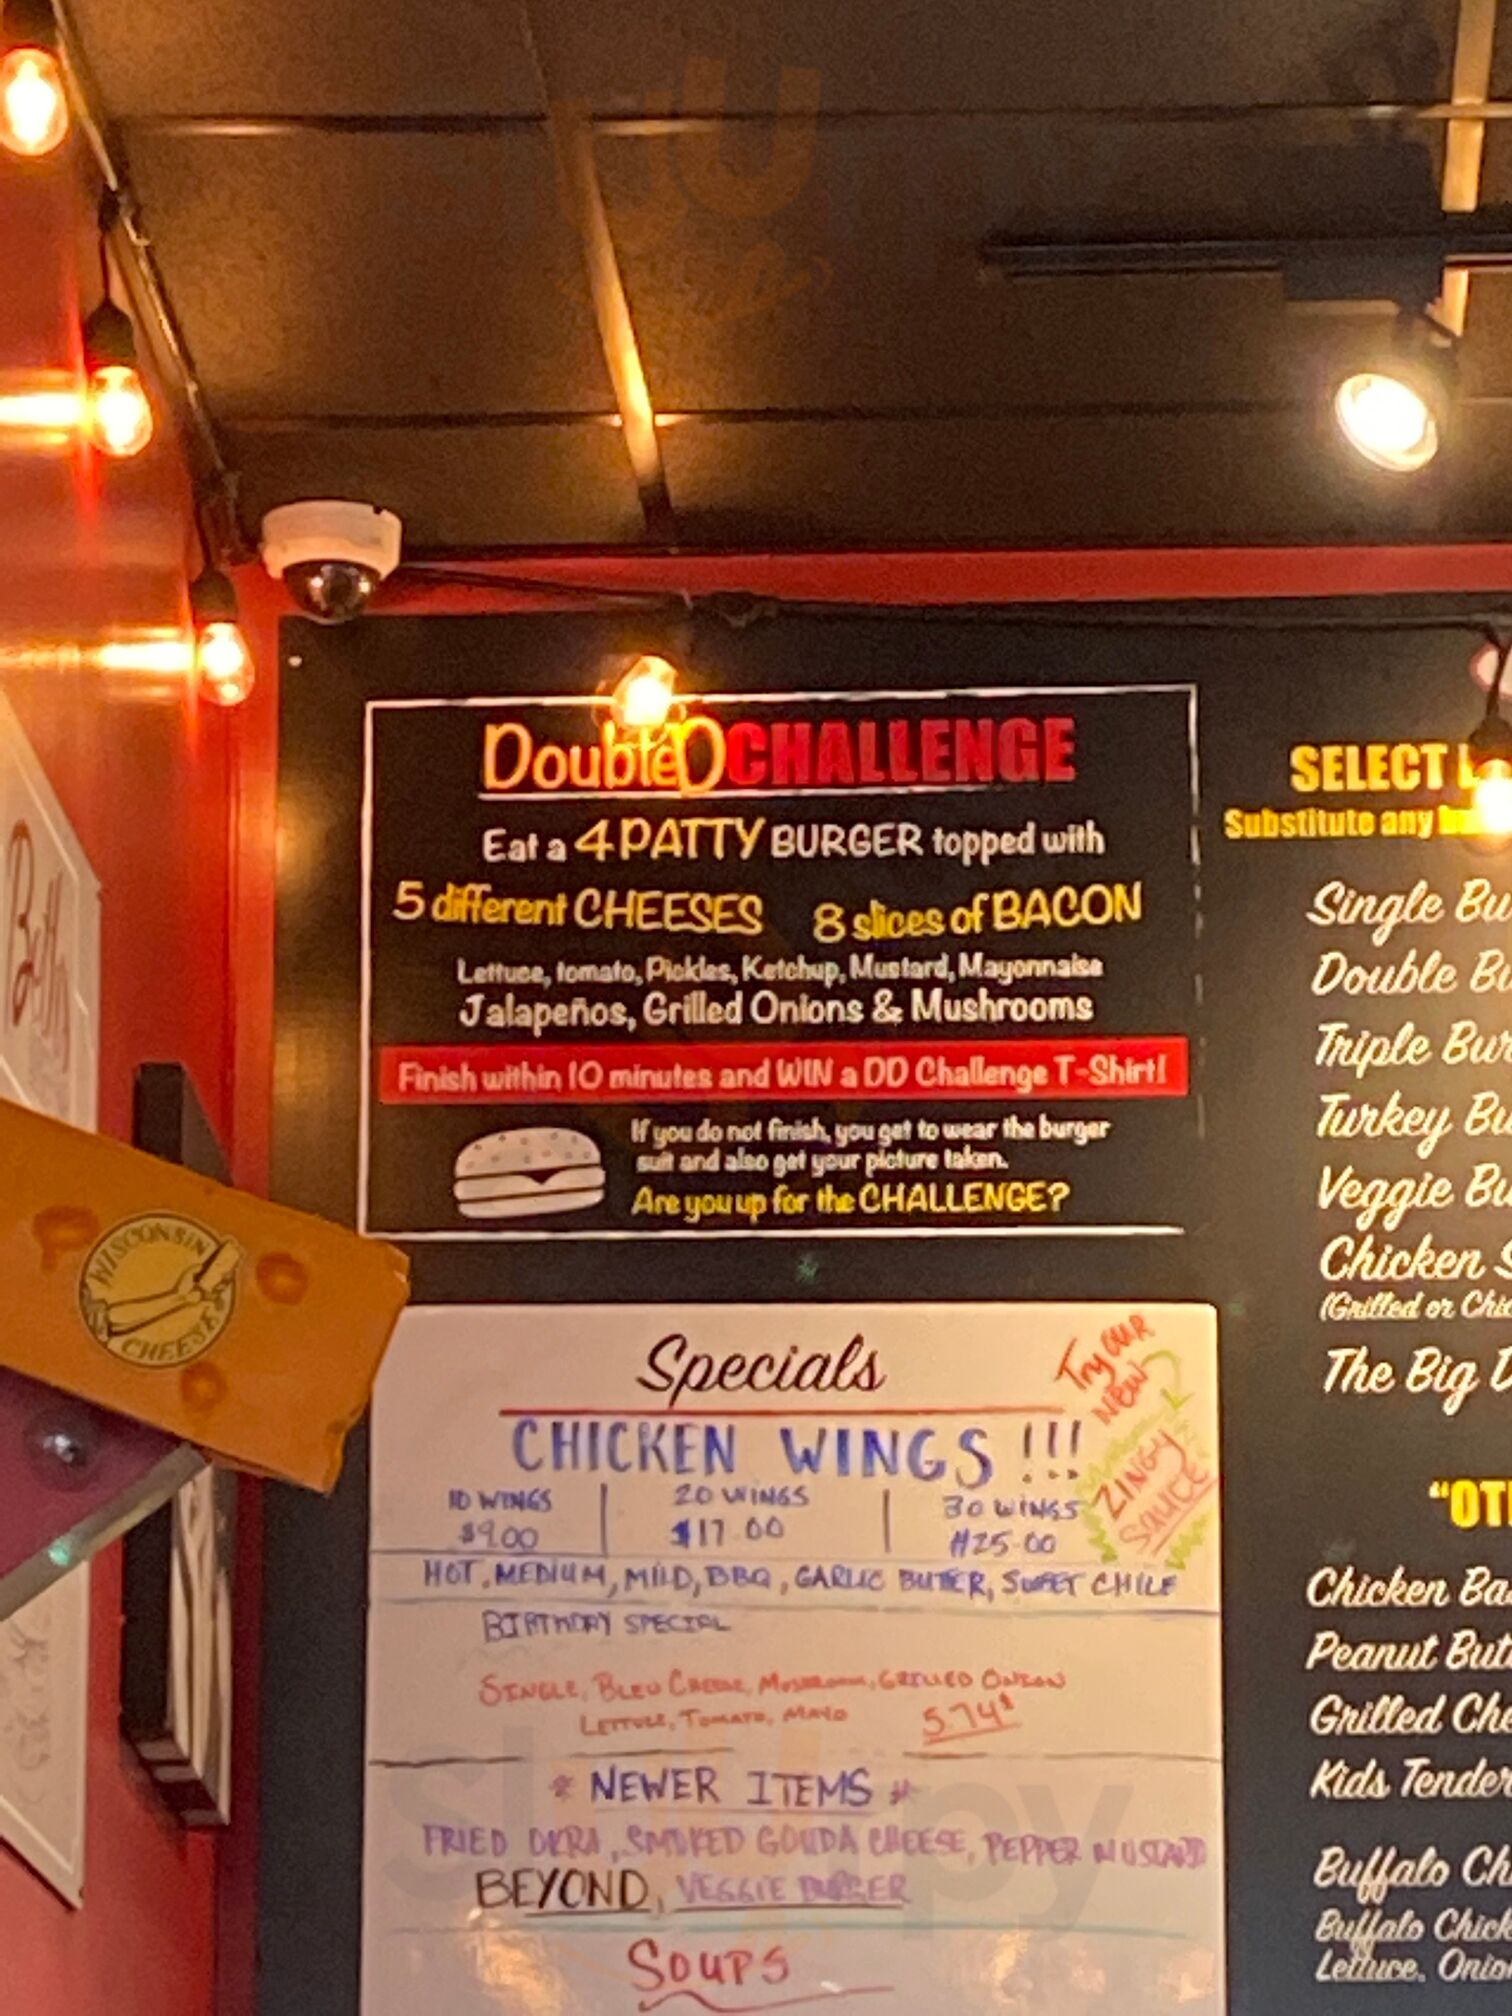 DoubleD CHALLENGE
Eat a 4 PATTY BURGER topped with
5 different CHEESES 8 slices of BACON
Lettuce, tomato, Pickles, Ketchup, Mustard, Mayonnaise
Jalapeños, Grilled Onions & Mushrooms
Finish within 10 minutes and WIN a DD Challenge T-Shirt!
If you do not finish, you get to wear the burger
suit and also get your picture taken.
Are you up for the CHALLENGE?
WISCONSIN
CHEESE
Specials
Try OUR
NEW
ZINGY
SAUCE
CHICKEN WINGS !!!
10 WINGS 20 WINGS 30 WINGS
$9.00 $17.00 $25.00
HOT, MEDIUM, MILD, BBQ, GARLIC BUTTER, SWEET CHILE
BIRTHDAY SPECIAL
SINGLE, BLEU CHEESE, MUSHROOM, GRILLED ONION
LETTUCE, TOMATO, MAYO 5.74
* NEWER ITEMS *
FRIED OKRA, SMOKED GOUDA CHEESE, PEPPER MUSTARD
BEYOND, VEGGIE BURGER
SOUPS
SELECT
Substitute any
Single
Double
Triple
Turkey
Veggie
Chicken
(Grilled or
The Big
"OT
Chicken
Peanut
Grilled
Kids
Buffalo
Buffalo
Lettuce,